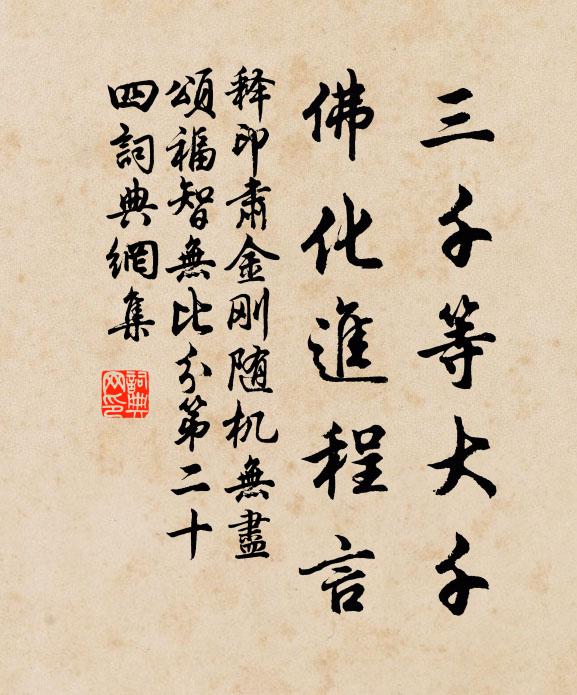 三千等大千
佛化進程言
释印肃金刚随机無盡
頌福智無比分第二十
四詞典網集
詞典
网印